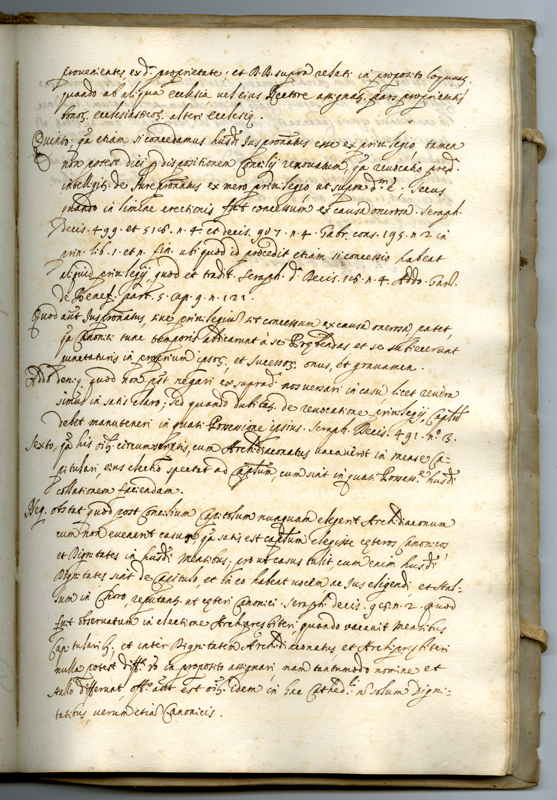 provenientes ex d.ª proprietate; et B.B. supra relati in proposito loquunt.
quando ab aliqua ecclesia vel eius Rectore assignat. pars proprietatis
bonor. ecclesiasticor. alteri ecclesiæ.
Quinto, qa etiam si concedamus husdi Juspronatus esse ex privilegio, tamen
non potest dici dispositionem Concilij renovatum, qa revocatio præd.
intelligit. de Jurepronatus ex mero privilegio ut supra d. e. Secus
quando in limine erectionis fuit concessum ex causa onerosa. Seraph.
decis. 499. et 516. n. 4. et decis. 907. n. 4. Gabr. cons. 195. n. 2 in
prin. lib. 1. et n. fin. ubi quod id procedit etiam si concessio habeat
privilegij, quod et tradit. Seraph. d. Decis. n. 4. Addo Garz.
de Benef. part. 5. cap. 9. n. 121.
Quod aut Juspronatus, sive privilegium sit concessum ex causa onerosa, patet,
qa Canonici tunc temporis abdicarunt à se Præbendas et se subiecerunt
puncturis in proprium ipsor. et sucessor. onus, et gravamen.
Addo deniq. quod non pot negari ex suprad. nos versari in casu, licet revera
simus in satis claro; sed quando dubitet. de revocatione privilegij Captm
debet manuteneri in quasi Possessione ipsius. Seraph. Decis. 491. no. 3.
Sexto, qa his oib. circumscriptis, cum Archidiaconatus vacaverit in mense Ca-
pitulari, eius electio spectat ad Captulum, cum sint in quasi Possess.e husdi
collationem faciendam.
Neq. obstat quod post Concilium Capitulum nunquam elegerit Archidiaconum
cum non evenerit casus, qa satis est captulum elegisse cæteros Canonicos
et Dignitates in husdi Mensibus, prout casus tulit cum enim husdi
Dignitates sint de Capitulo, et in eo habeat vocem ac Jus eligendi, et stal-
lum in Choro reputant. ut cæteri Canonici. Seraph. decis. 968. n. 2. quod
fuit observatum in electione Archipresbiteri quando vacavit Mensibus
Capitularib., et inter Dignitatem Archidiaconatus et Archipresbiteri
nulla potest diffª. in proposito assignari nam tantummodo nomine et
stallo differunt, offm. aut est oib. idem in hac Cathed.li non solum Digni-
tatibus, verum etiam Canonicis.